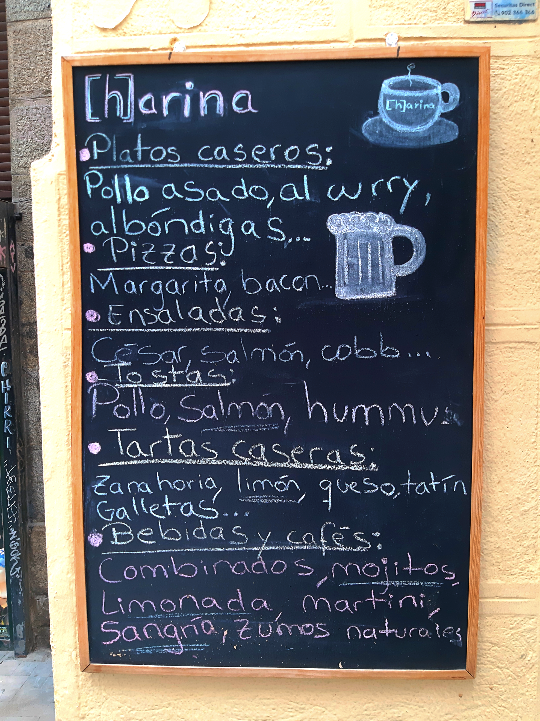 Securitas Direct
902 366 366
[h]arina
[h]arina
Platos caseros:
Pollo asado, al curry,
albóndigas,...
Pizzas:
Margarita, bacon...
Ensaladas:
César, Salmón, cobb...
Tostas:
Pollo, Salmón, hummus
Tartas caseras:
Zanahoria, limón, queso, tatín
Galletas...
Bebidas y cafés:
Combinados, mojitos,
Limonada, martini,
Sangría, Zumos naturales